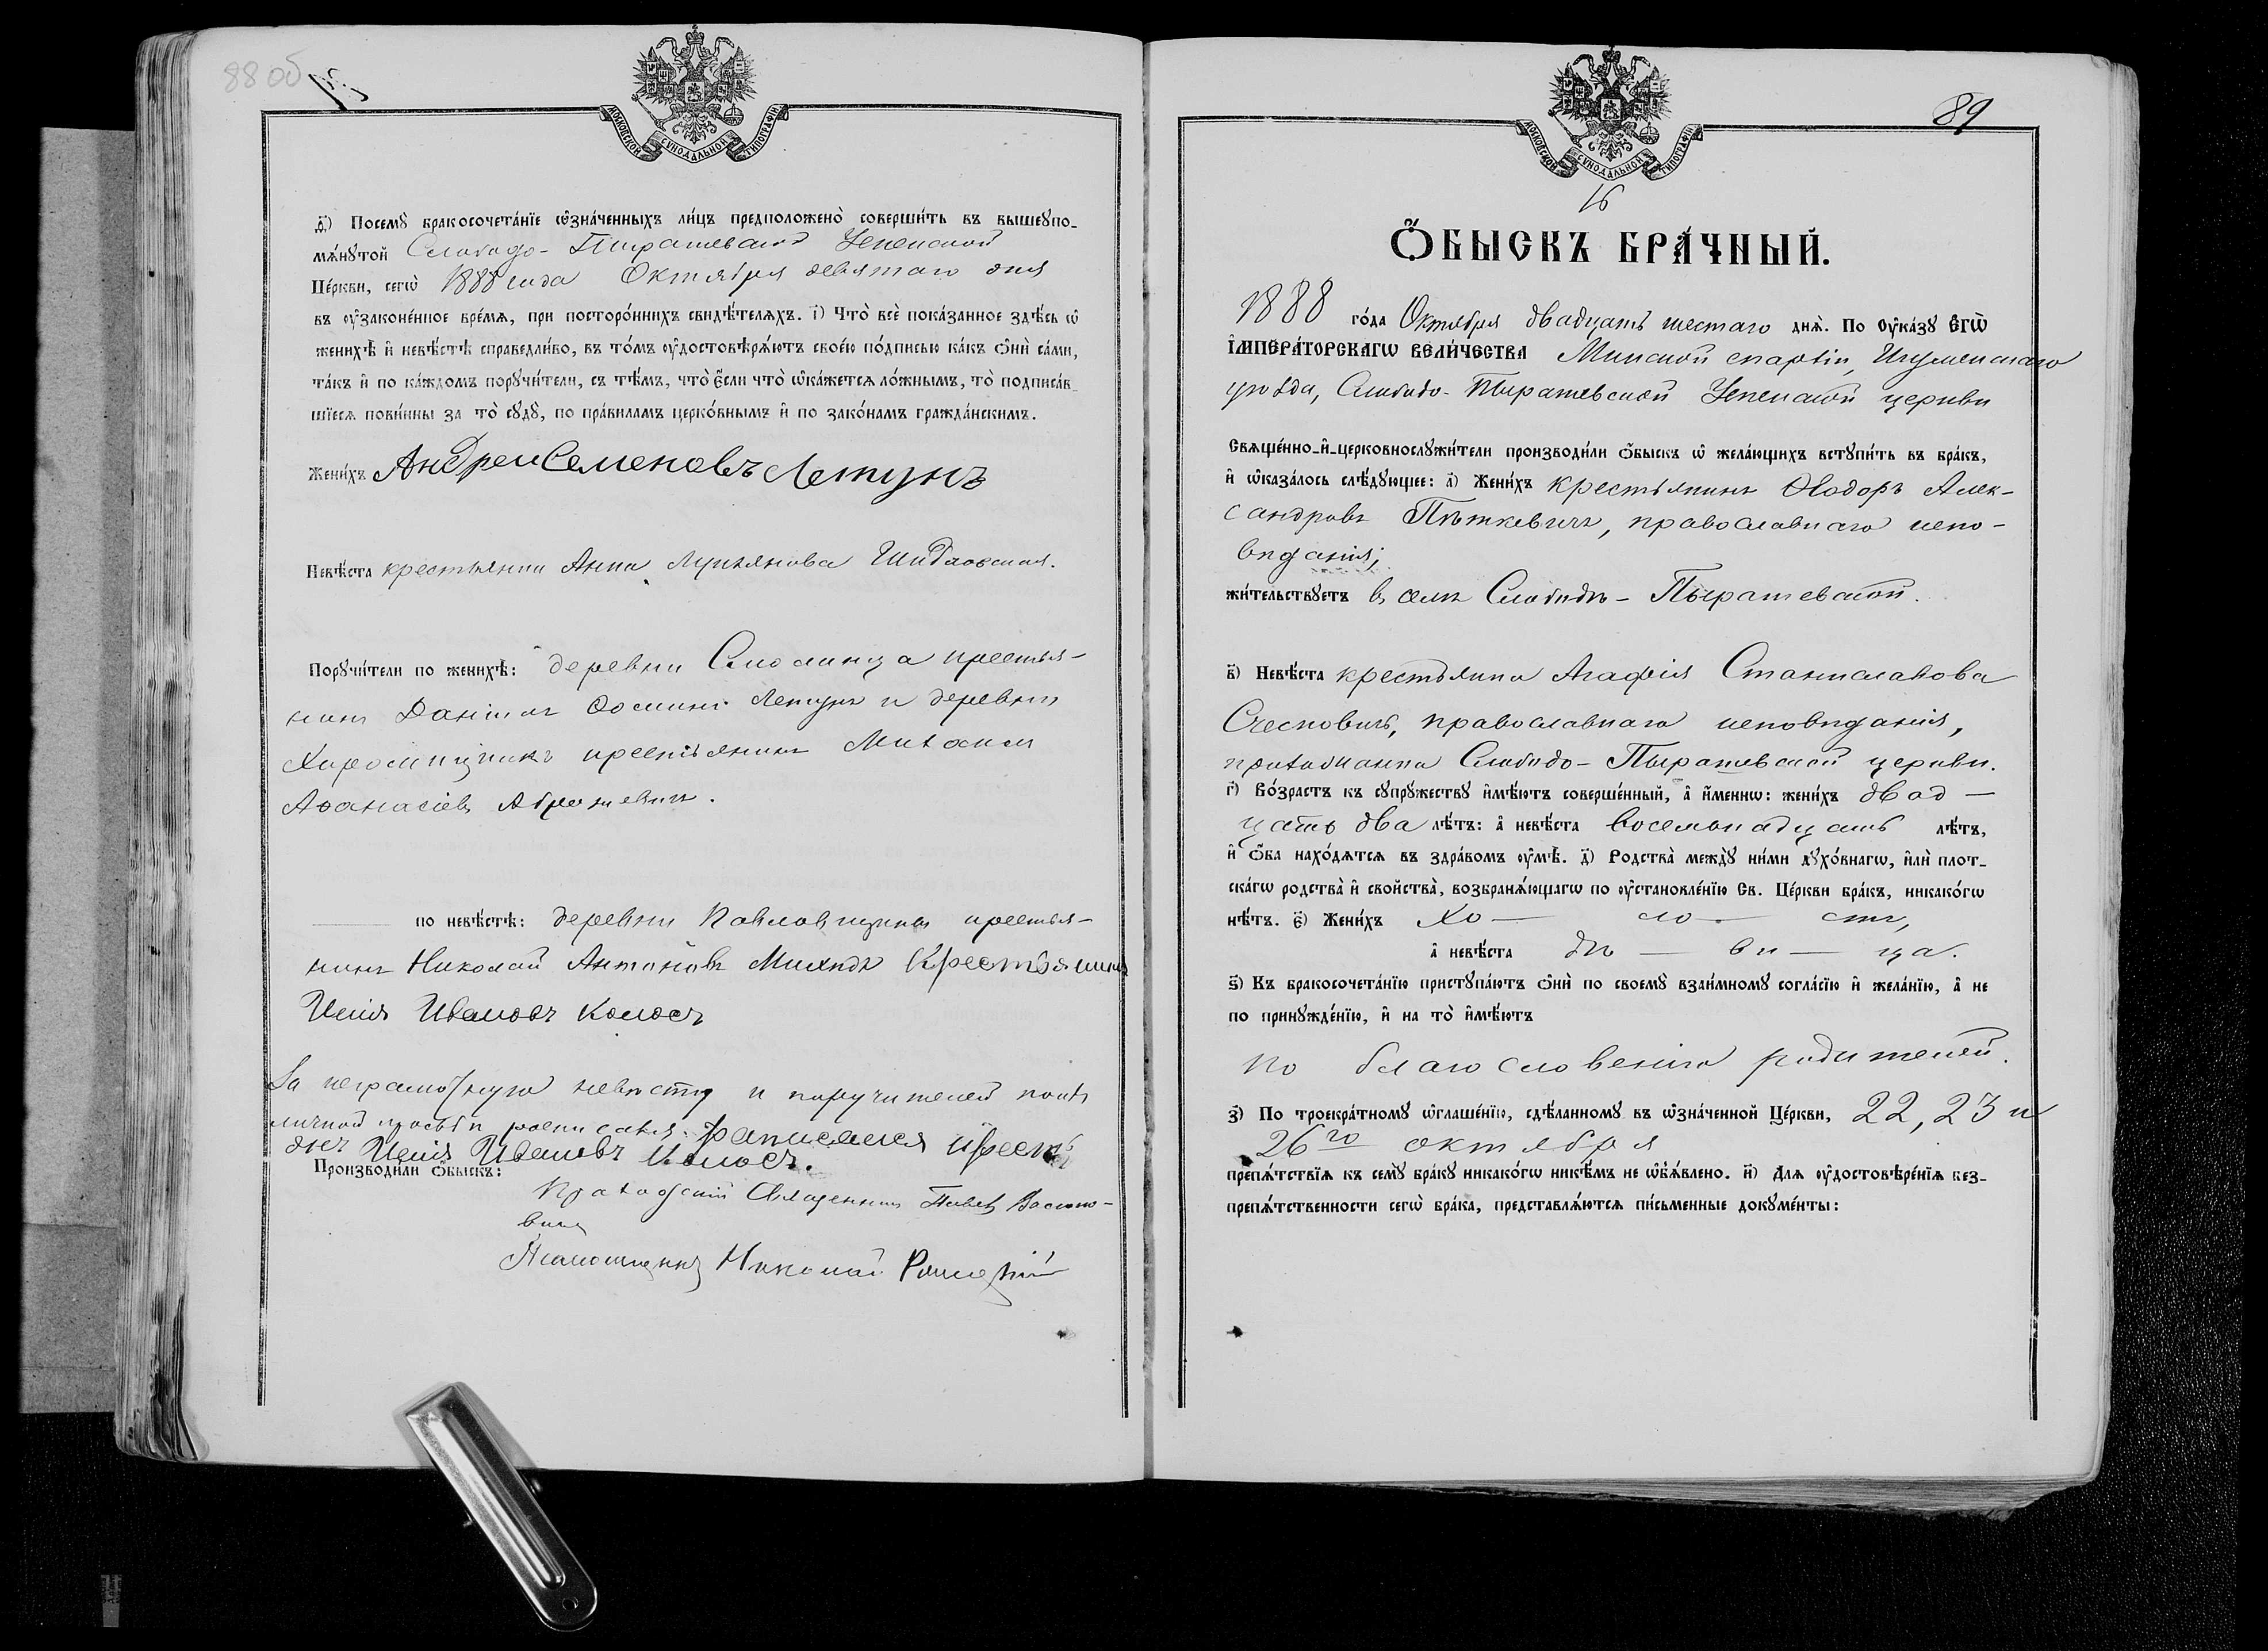 88 об
МОСКОВСКОЙ СѴНОДАЛЬНОЙ ТИПОГРАФІИ
д҃) Посемꙋ бракосочета́нїе ѡ҆зна́ченныхъ ли́цъ предположено̀ соверши́ть въ вышеꙋпо-
мѧ́нꙋтой Слободо-Пырашевской Успенской
Це́ркви, сегѡ̀ 1888 года Октября девятаго дня
въ ᲂу҆законе́нное вре́мѧ, при посторо́ннихъ свидѣ́телѧхъ. і҃) Что̀ всѐ пока́занное здѣ́сь ѡ҆
женихѣ̀ и҆ невѣ́стѣ справедли́во, въ то́мъ ᲂу҆достовѣрѧ́ютъ свое́ю по́дписью ка́къ ѻ҆нѝ са́ми,
та́къ и҆ по ка́ждомъ порꙋчи́тели, съ тѣ́мъ, что̀ є҆́сли что̀ ѡ҆ка́жетсѧ ло́жнымъ, то̀ подписа́в-
шїесѧ пови́нны за то̀ сꙋдꙋ̀, по пра́виламъ церко́внымъ и҆ по зако́намъ гражда́нскимъ.
Жени́хъ Андреи Семеновъ Летунъ
Невѣ́ста крестьянка Анна Лукьянова Шидловская.
Порꙋчи́тели по женихѣ̀: деревни Слосинца крестья-
нинъ Даниилъ Ѳоминъ Летунъ и деревни
крестьянинъ Михаилъ
Аѳанасіевъ
по невѣ́стѣ: деревни Павловщины крестья-
нинъ Николай Антоновъ Крестьянинъ
Исаія Ивановъ Колосъ
За неграмотную невѣсту и поручителей по ихъ
личной просьбѣ росписался.
Ивановъ Колосъ.
Производи́ли ѻ҆́быскъ:
Приходскій Священникъ Павелъ
вичъ
Псаломщикъ Николай
89
МОСКОВСКОЙ СѴНОДАЛЬНОЙ ТИПОГРАФІИ
16
Ѻ҆́БЫСКЪ БРА́ЧНЫЙ.
1888 го́да Октября двадцать шестаго днѧ̀. По Оу҆ка́зꙋ Є҆ГѠ̀
І҆МПЕРА́ТОРСКАГѠ ВЕЛИ́ЧЕСТВА Минской епархіи, Игуменскаго
уѣзда, Слободо-Пырашевской Успенской церкви
Свѧще́нно-и҆-церковнослꙋжи́тели производи́ли ѻ҆́быскъ ѡ҆ жела́ющихъ встꙋпи́ть въ бра́къ,
и҆ ѡ҆каза́лось слѣ́дꙋющее: а҃) Жени́хъ крестьянинъ Ѳеодоръ Алек-
сандровъ Пѣткевичъ, православнаго испо-
вѣданія;
жи́тельствꙋетъ въ селѣ Слободѣ-Пырашевской.
в҃) Невѣ́ста крестьянка Агафія Станиславова
Счесновичъ, православнаго исповѣданія,
прихожанка Слободо-Пырашевской церкви.
г҃) Во́зрастъ къ сꙋпрꙋ́жествꙋ и҆мѣ́ютъ соверше́нный, а҆ и҆́меннѡ: жени́хъ двад-
цать два лѣ́тъ: а҆ невѣ́ста восемьнадцать лѣ́тъ,
и҆ ѻ҆́ба нахо́дѧтсѧ въ здра́вомъ ᲂу҆мѣ̀. д҃) Родства̀ междꙋ̀ ни́ми дꙋхо́внагѡ, и҆лѝ плот-
ска́гѡ родства̀ и҆ свойства̀, возбранѧ́ющагѡ по ᲂу҆становле́нїю Св. Це́ркви бра́къ, никако́гѡ
нѣ́тъ. є҃) Жени́хъ хо — ло — стъ,
а҆ невѣ́ста дѣ — ви — ца.
ѕ҃) Къ бракосочета́нїю пристꙋпа́ютъ ѻ҆нѝ по своемꙋ̀ взаи́мномꙋ согла́сїю и҆ жела́нїю, а҆ не
по принꙋжде́нїю, и҆ на то̀ и҆мѣ́ютъ
по благословенію родителей.
з҃) По троекра́тномꙋ ѡ҆глаше́нїю, сдѣ́ланномꙋ въ ѡ҆зна́ченной Це́ркви, 22, 23 и
26го октября
препѧ́тствїѧ къ семꙋ̀ бра́кꙋ никако́гѡ никѣ́мъ не ѡ҆б̾ѧ́влено. и҃) Длѧ ᲂу҆достовѣре́нїѧ без-
препѧ́тственности сегѡ̀ бра́ка, представлѧ́ютсѧ пи́сьменные докꙋме́нты: